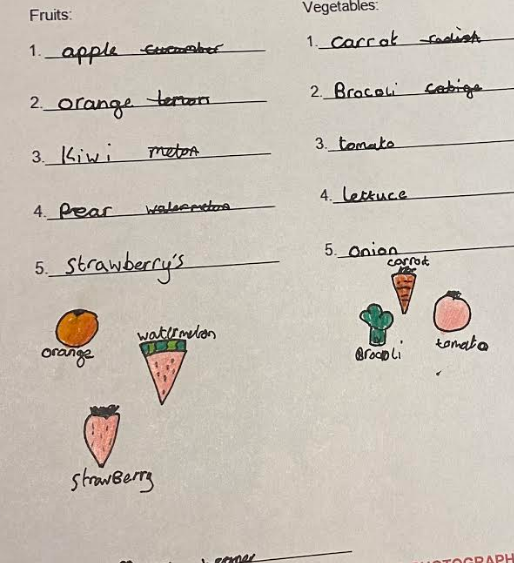 Fruits:
1. apple cucumber
2. orange lemon
3. Kiwi melon
4. Pear watermelon
5. Strawberry's
orange
watermelon
StrawBerry
Vegetables:
1. carrot radish
2. Brocoli cabige
3. tomato
4. lettuce
5. onion
carrot
Brocoli
tomato